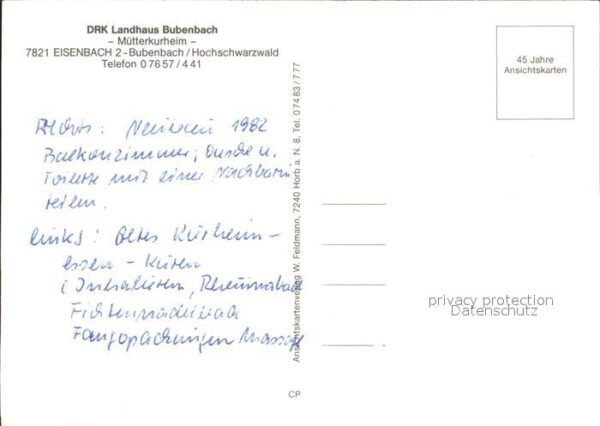 DRK Landhaus Bubenbach
– Mütterkurheim –
7821 EISENBACH 2 - Bubenbach / Hochschwarzwald
Telefon 0 76 57 / 4 41
45 Jahre
Ansichtskarten
Rechts: Neubau 1982
Balkonzimmer, Dusche u.
Toilette mit einer Nachbarin
teilen.
links: Altes Kurheim –
essen – Kuren
(Inhalieren, Rheumabad
Fichtennadelbad
Fangopackungen Massage
Ansichtskartenverlag W. Feldmann, 7240 Horb a. N. 8, Tel. 0 74 83 / 7 77
privacy protection
Datenschutz
CP